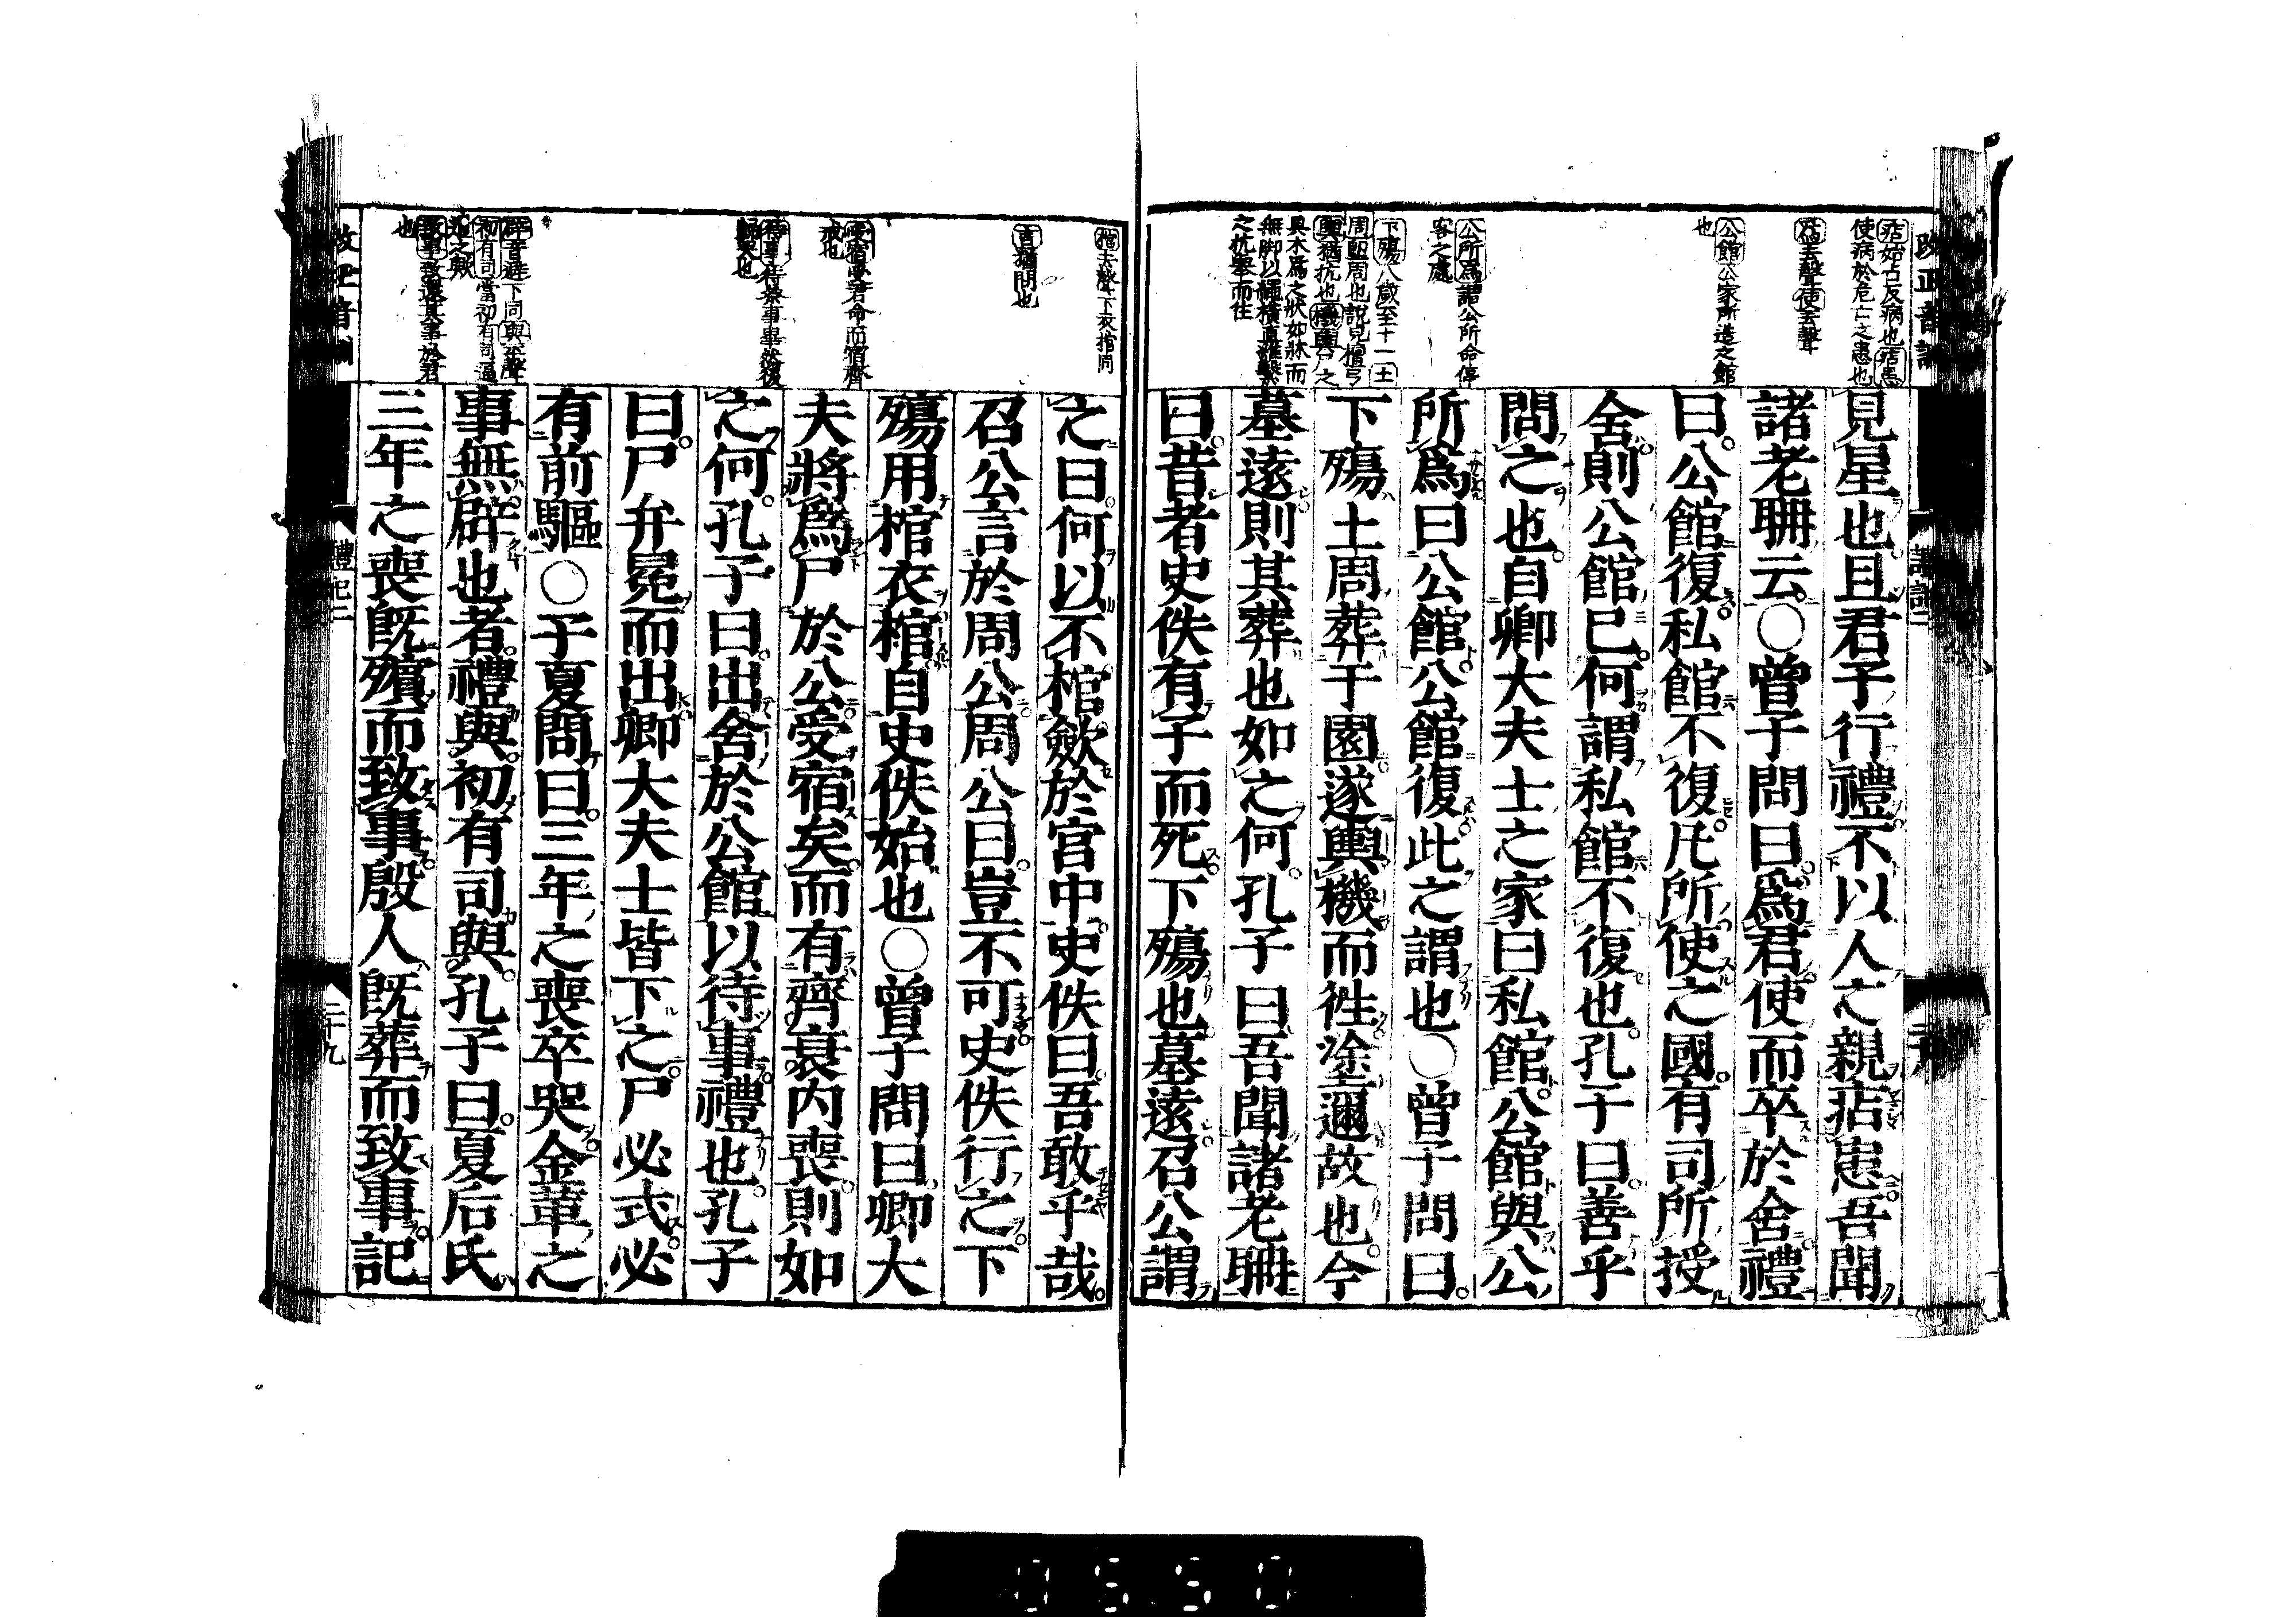 痁始占反病也痁患
使病於危亡之患也
爲去聲使去聲
公館公家所造之館
也
公所爲謂公所命停
客之處
下殤八歲至十一土
周堲周也説見檀弓
輿猶抗也機輿尸之
具木爲之狀如牀而
無脚以繩横直維繫
之抗擧而往
見星也且君子行禮不以人之親痁患吾聞
諸老聃云○曾子問曰爲君使而卒於舍禮
曰公館復私館不復凡所使之國有司所授
舍則公館已何謂私館不復也孔子曰善乎
問之也自卿大夫士之家曰私館公館與公
所爲曰公館公館復此之謂也○曾子問曰
下殤土周葬于園遂輿機而往塗邇故也今
墓遠則其葬也如之何孔子曰吾聞諸老聃
曰昔者史佚有子而死下殤也墓遠召公謂
棺去聲下衣棺同
言猶問也
受宿受君命而宿齊
戒也
待事待祭事畢然後
歸哭也
辟音避下同與平聲
初有司當初有司逼
迫之歟
致事致還其事於君
也
之曰何以不棺歛於宮中史佚曰吾敢乎哉
召公言於周公周公曰豈不可史佚行之下
殤用棺衣棺自史佚始也○曾子問曰卿大
夫將爲尸於公受宿矣而有齊衰内喪則如
之何孔子曰出舍於公館以待事禮也孔子
曰尸弁冕而出卿大夫士皆下之尸必式必
有前驅○子夏問曰三年之喪卒哭金革之
事無辟也者禮與初有司與孔子曰夏后氏
三年之喪既殯而致事殷人既葬而致事記
禮記二
二十九